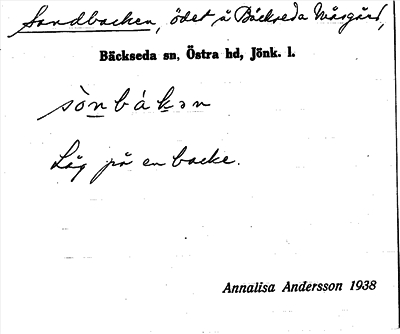 Sandbacken, ödet å Bäckseda Mosgård,
Bäckseda sn, Östra hd, Jönk. l.
sònbákən
Låg på en backe.
Annalisa Andersson 1938